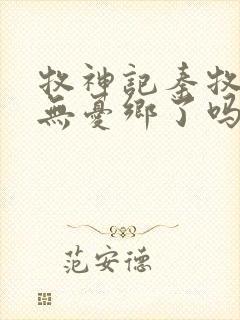 牧神記秦牧
無憂鄉了吗
范安德